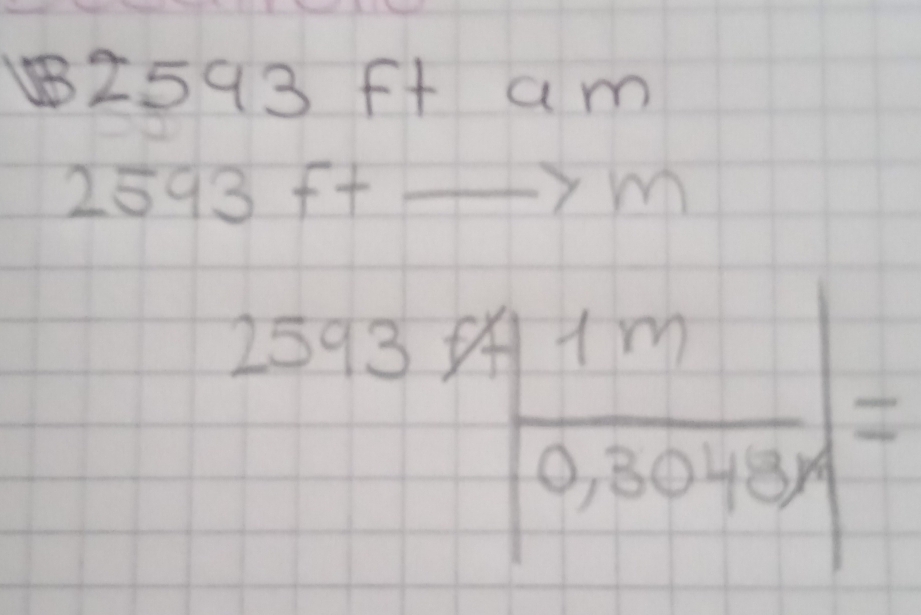 2593 ft a m
2593 ft → m
2593 ft | 1 m | =
0,3048